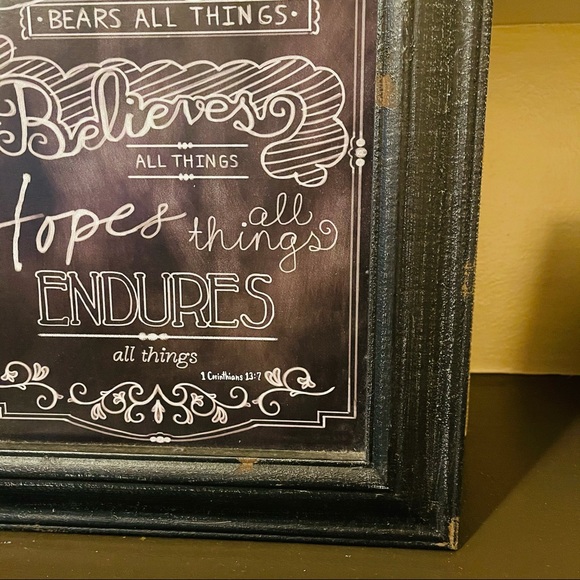 BEARS ALL THINGS
Believes
ALL THINGS
Hopes all things
ENDURES
all things
1 Corinthians 13:7